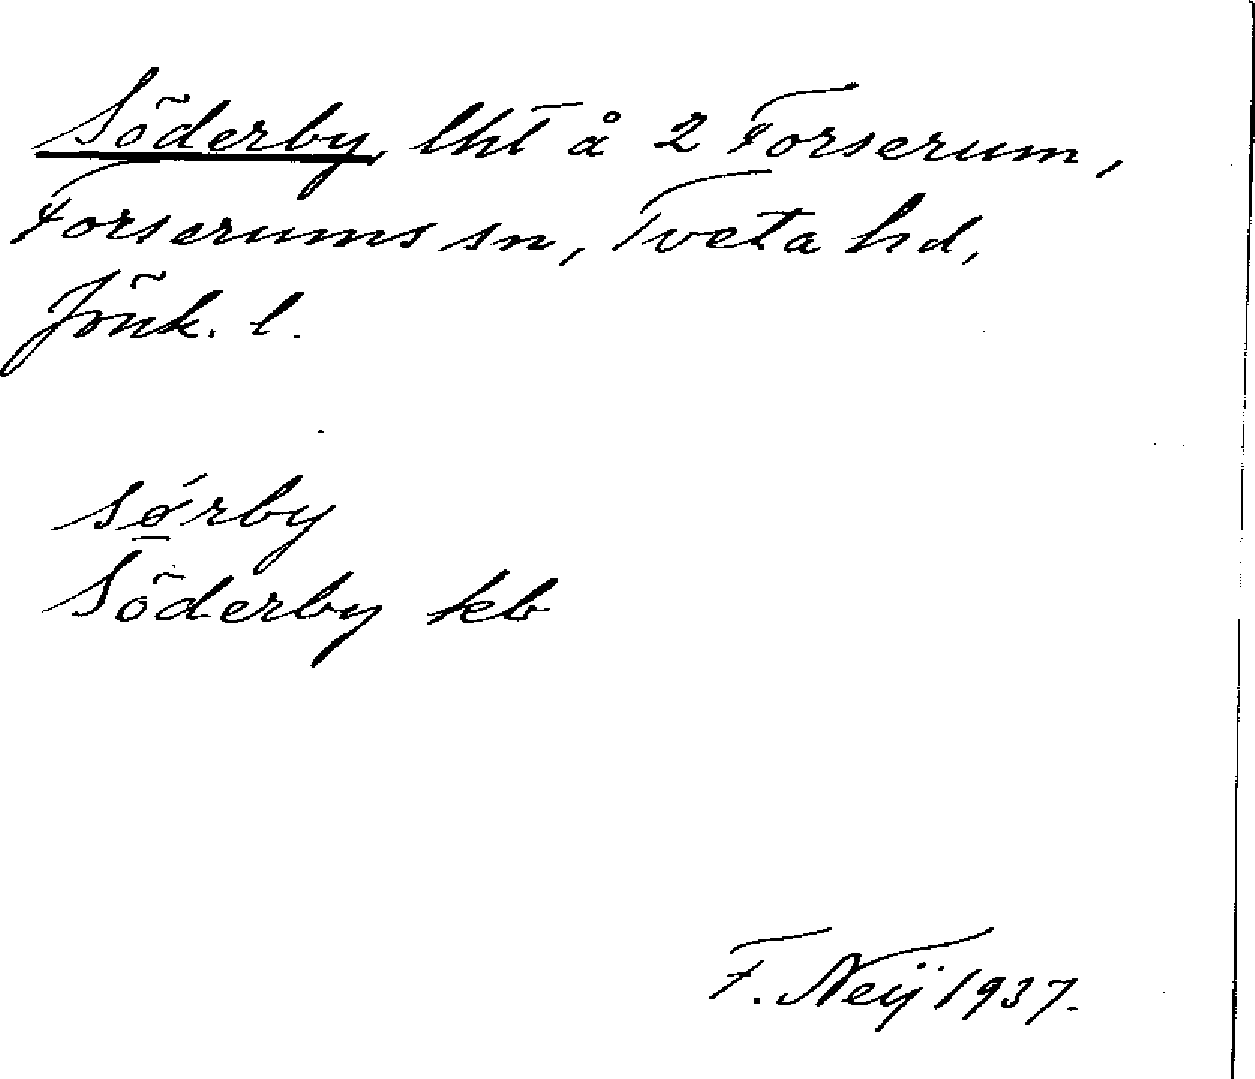 Söderby, lht å 2 Forserum,
Forserums sn, Tveta hd,
Jönk. l.
sǿrby
Söderby kb
F. Neij 1937.